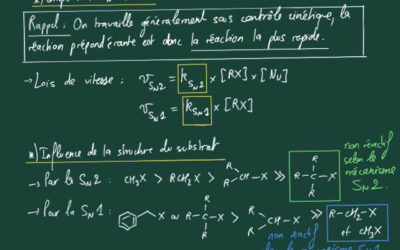 Rappel : On travaille généralement sous contrôle cinétique, la
réaction prépondérante est donc la réaction la plus rapide.
→ Lois de vitesse : v_SN2 = k_SN2 × [RX] × [Nu]
v_SN1 = k_SN1 × [RX]
*) Influence de la structure du substrat
→ Par la SN2 : CH3X > RCH2X > R R CH–X >> R R–C–X R
non réactif
selon le
mécanisme
SN2.
→ Pour la SN1 : X ou R R–C–X R > R R CH–X >> R–CH2–X
et CH3X
non réactif